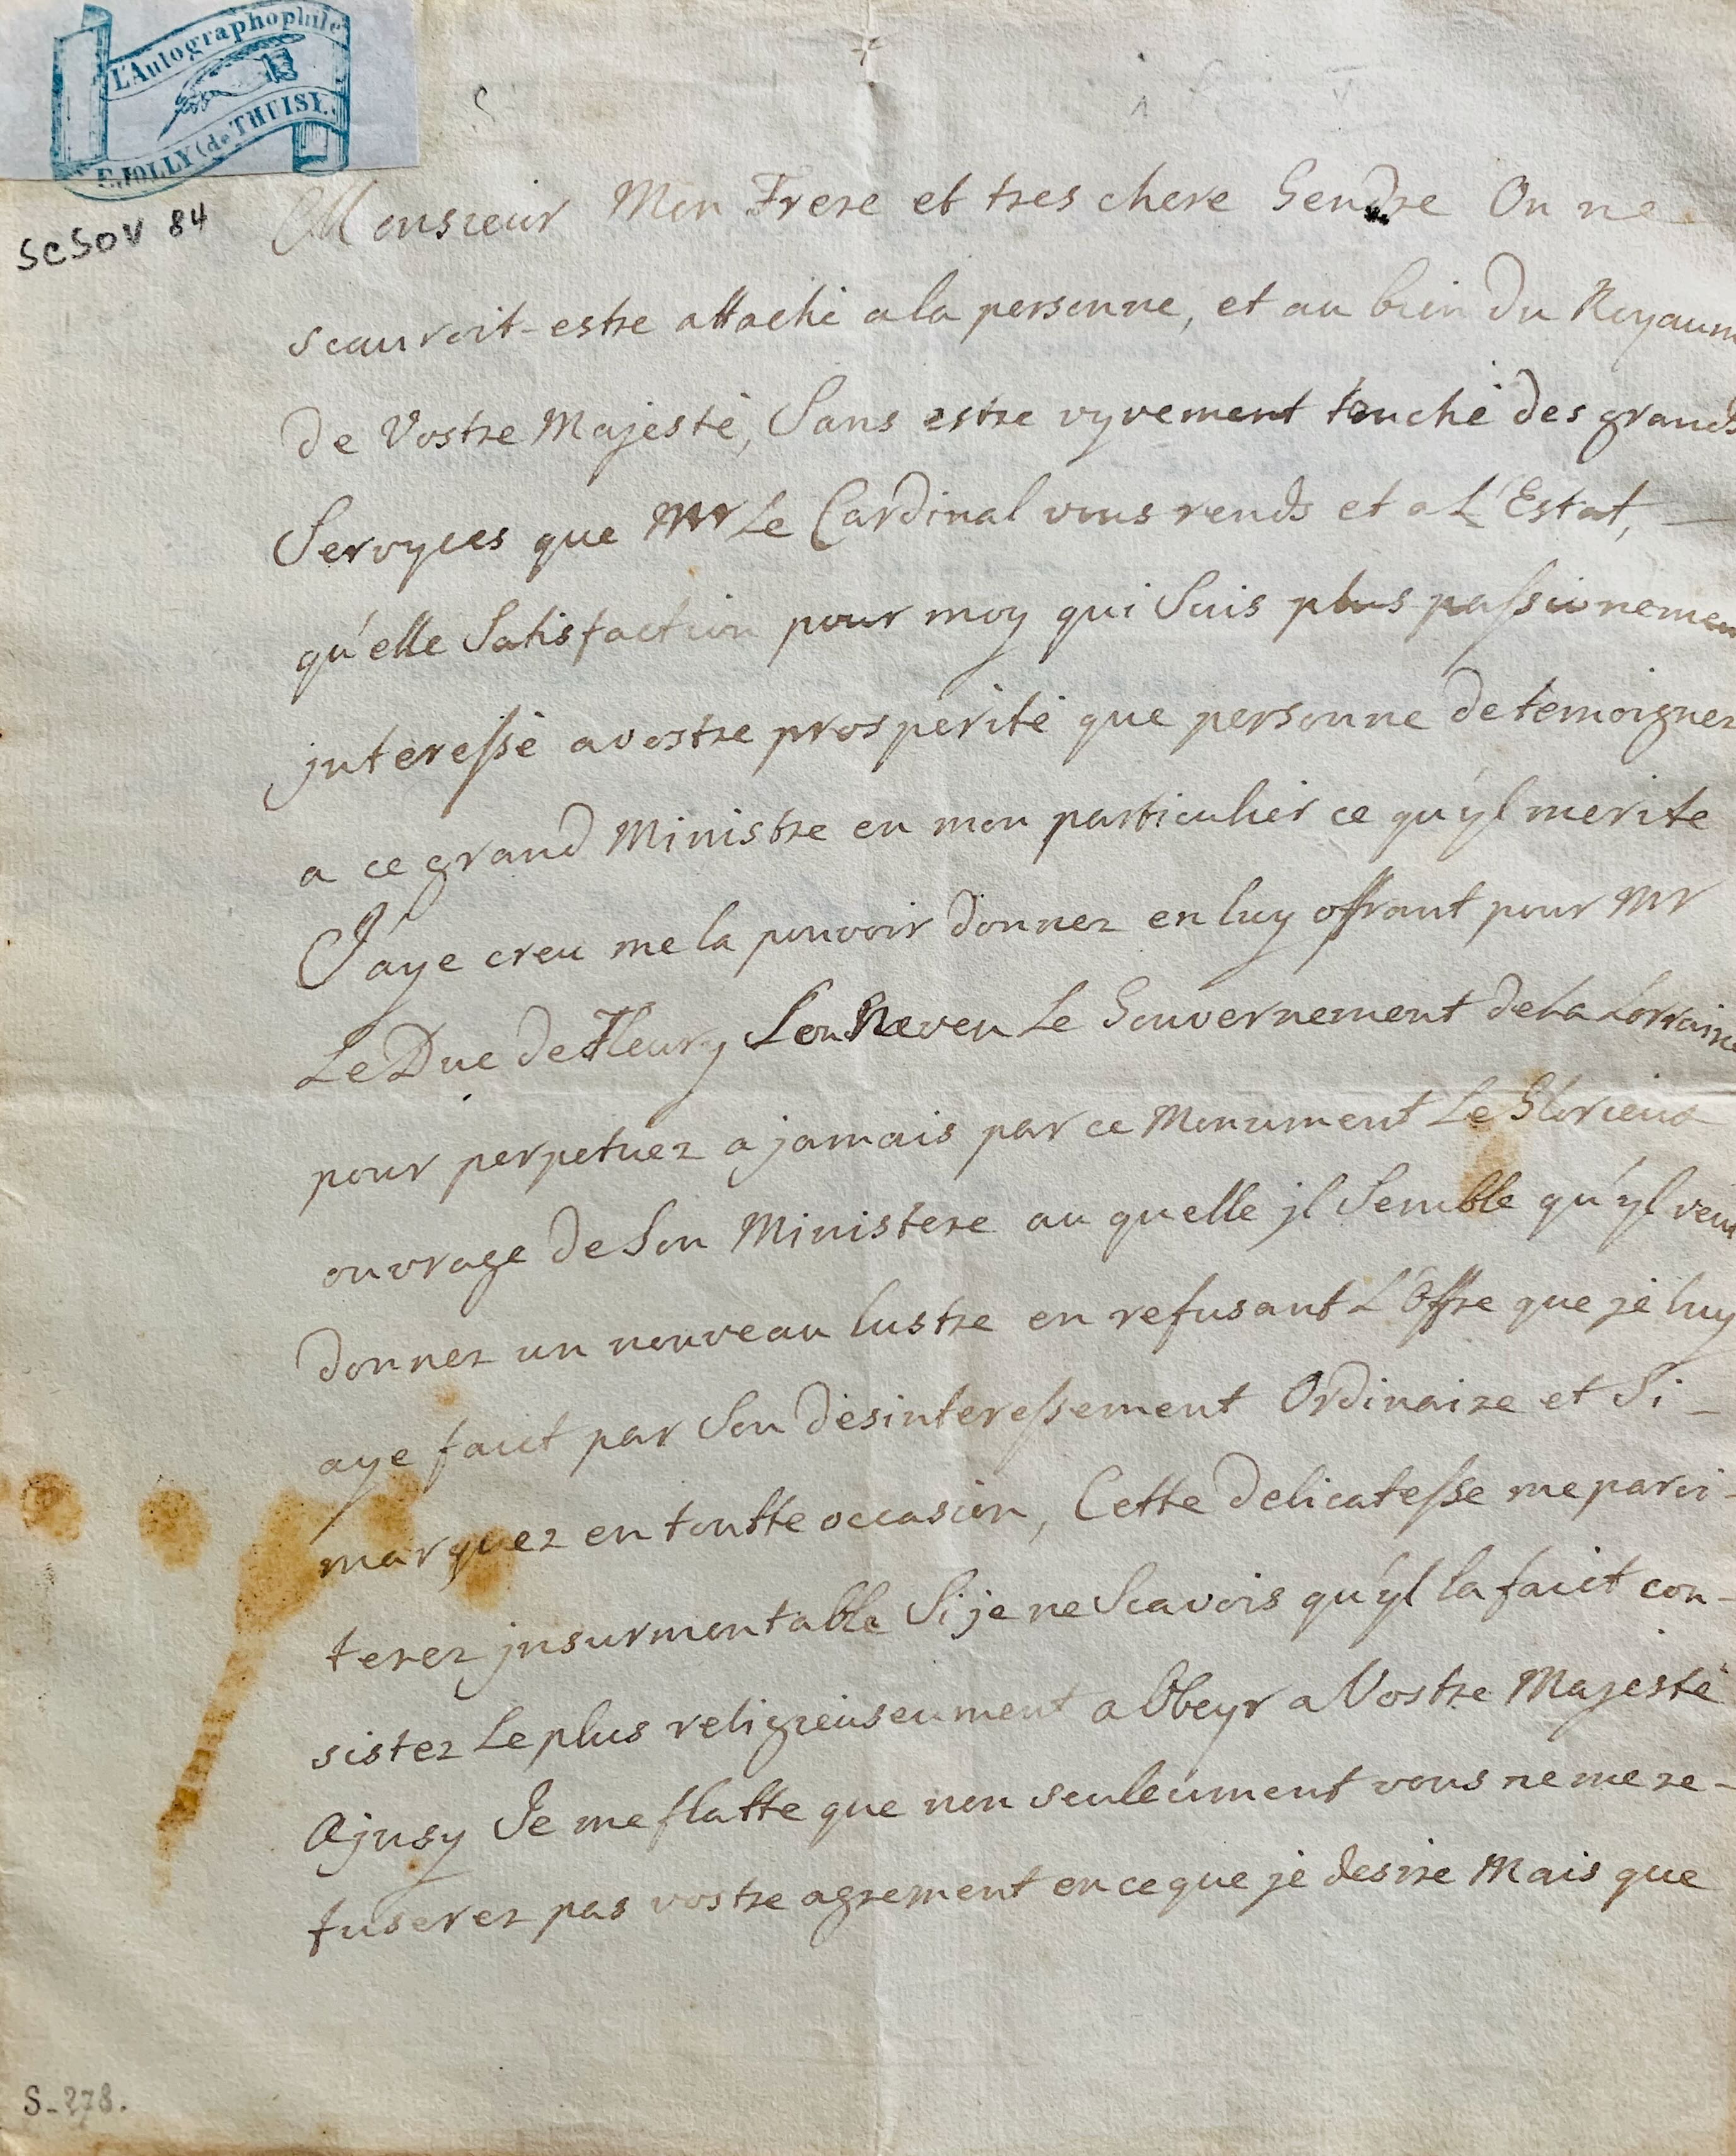 L'Autographophile
E. JOLLY (de THUISY)
SCSOV 84
Monsieur Mon Frere et tres chere Gendre On ne
scauroit-estre attaché a la personne, et au bien du Royaum
de Vostre Majesté, Sans estre vyvement touché des grands
Servyces que Mr Le Cardinal vous rends et a L'Estat,
qu'elle Satisfaction pour moy qui Suis plus passionemen
jnteressé a vostre prosperité que personne de temoigner
a ce grand Ministre en mon particulier ce qu'yl merite
J'aye creu me la pouvoir donner en luy offrant pour Mr
Le Duc de Fleury Son Neveu Le Gouvernement de La Lorraine
pour perpetuer a jamais par ce Monument Le Glorieux
ouvrage de Son Ministere au quelle jl Semble qu'yl veut
donner un nouveau lustre en refusant L'Offre que je luy
aye faict par Son desinteressement Ordinaire et Si-
marquer en toutte occasion, Cette delicatesse me paroi-
terez jnsurmontable Si je ne Scavois qu'yl la faict con-
sister Le plus religieuseument a Obeyr a Vostre Majesté
Ajnsy Je me flatte que non seuleument vous ne me re-
fuserez pas vostre agrement en ce que je desire Mais que
S-278.